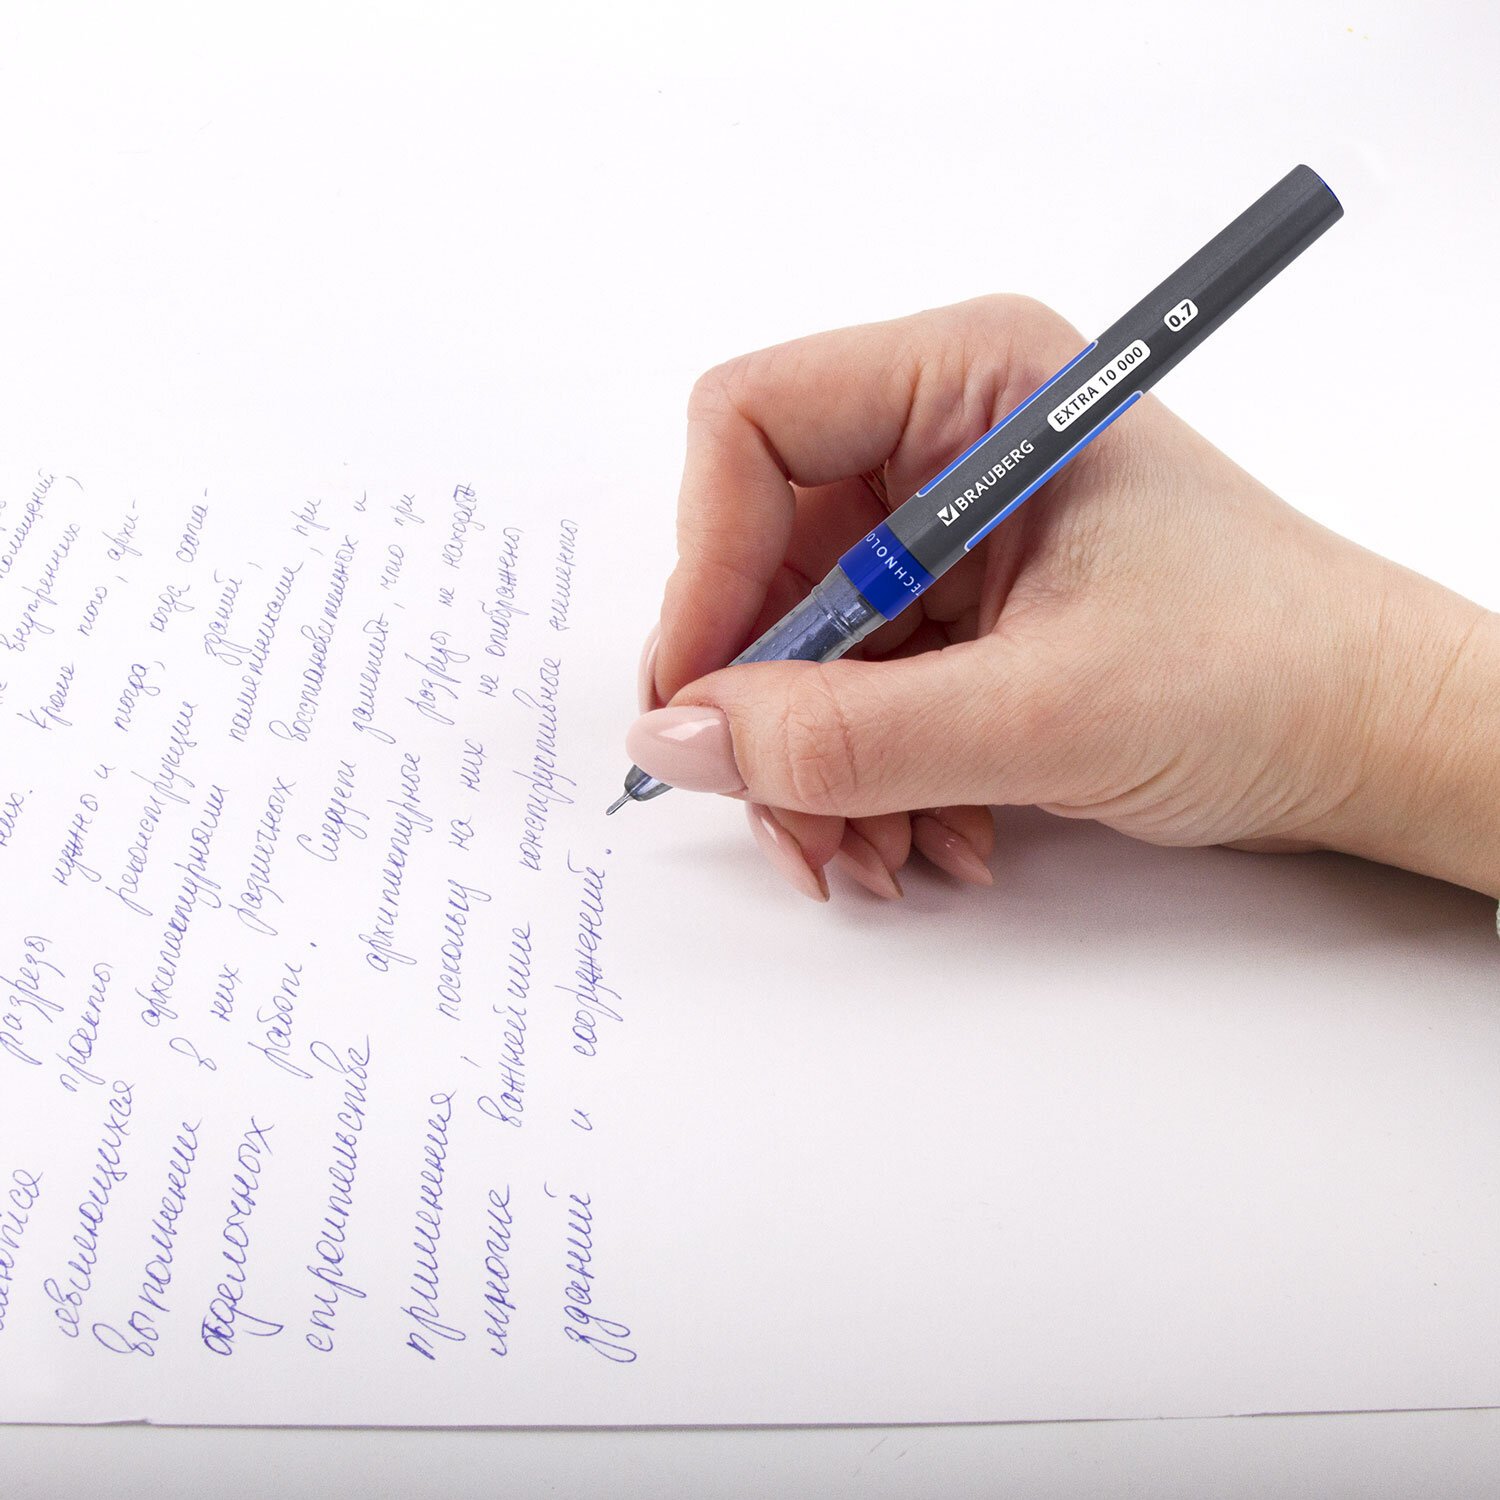 помещений,
внутренних
них. Кроме того, архи-
разрезы нужно и тогда, когда согла-
проекты реконструкции зданий,
являющихся архитектурными памятниками, при
выполнении в них различных восстановительных и
отделочных работ. Следует заметить, что при
строительстве архитектурные разрезы не находят
применения, поскольку на них не отображено
многие важнейшие конструктивные элементы
зданий и сооружений.
BRAUBERG EXTRA 10 000 0.7
TECHNOLO